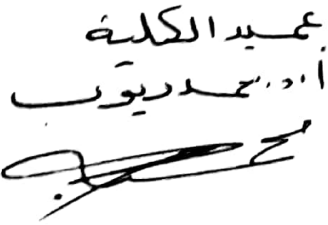 عميد الكلية
أ.د. محمد ديوب